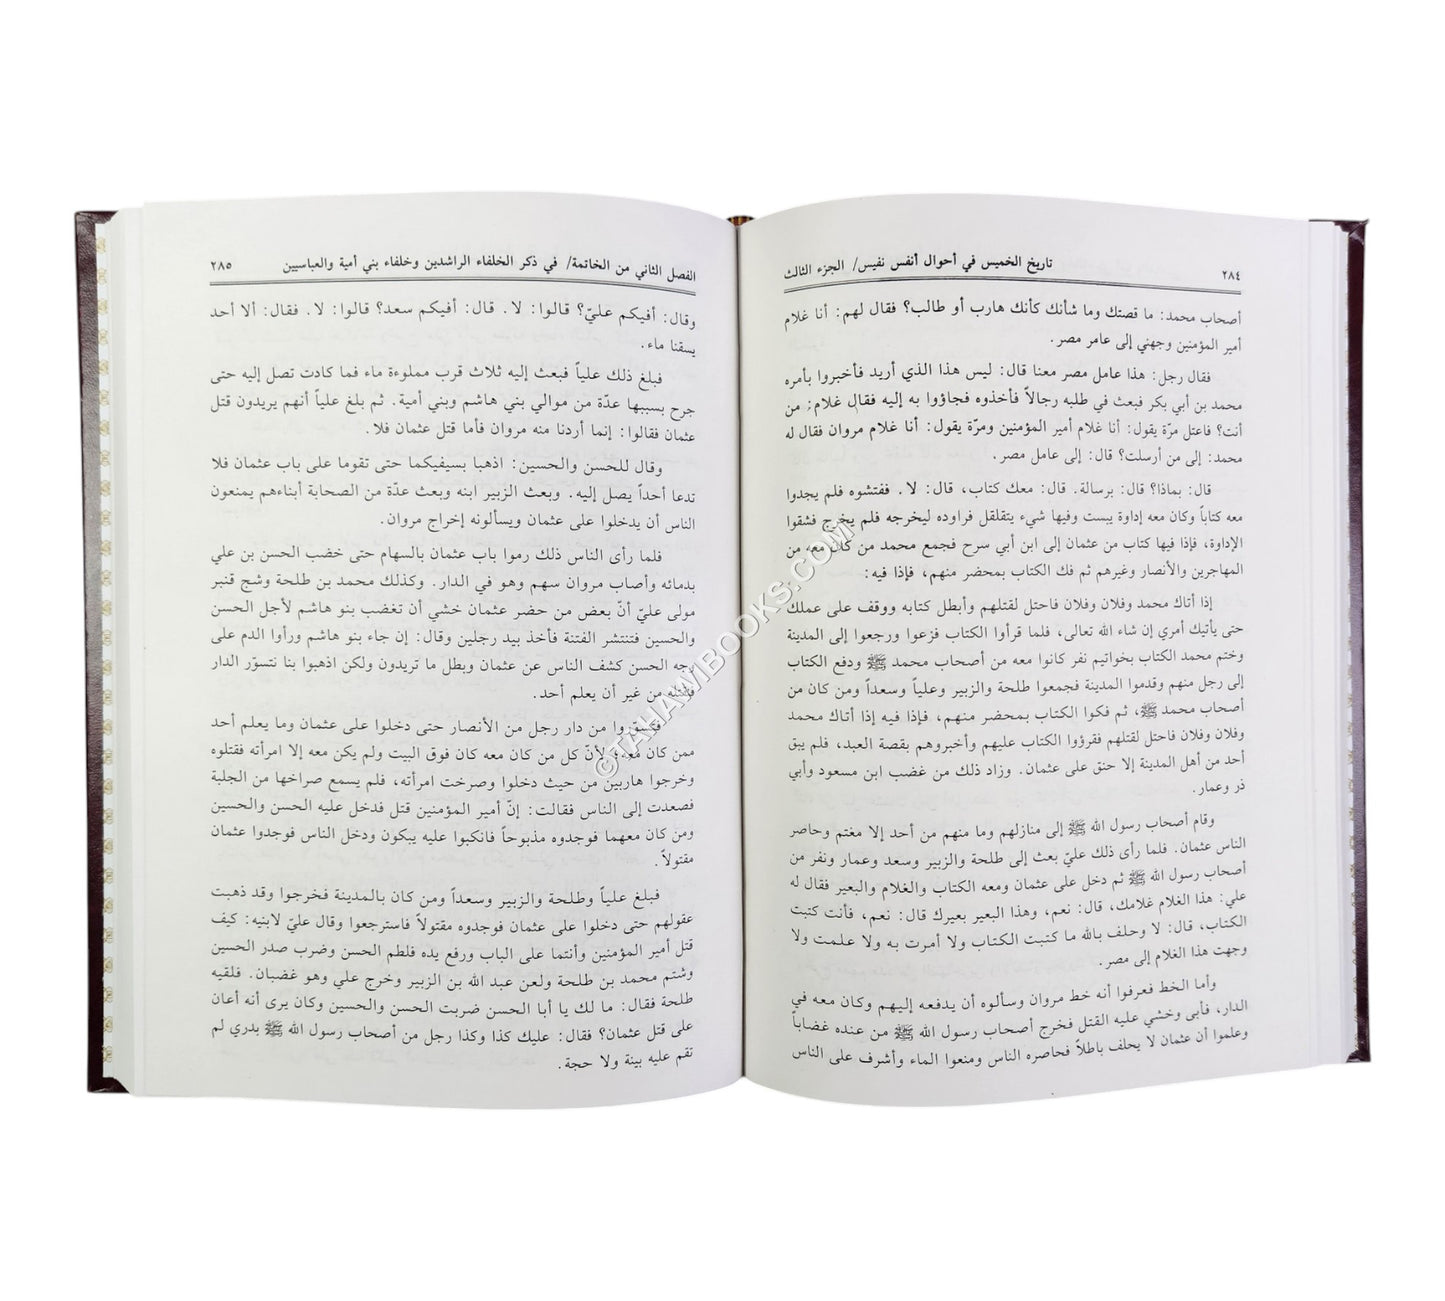 ٢٨٤ تاريخ الخميس في أحوال أنفس نفيس/ الجزء الثالث
أصحاب محمد: ما قصتك وما شأنك كأنك هارب أو طالب؟ فقال لهم: أنا غلام
أمير المؤمنين وجهني إلى عامر مصر.
فقال رجل: هذا عامل مصر معنا قال: ليس هذا الذي أريد فأخبروا بأمره
محمد بن أبي بكر فبعث في طلبه رجالاً فأخذوه فجاؤوا به إليه فقال غلام: من
أنت؟ فاعتل مرّة يقول: أنا غلام أمير المؤمنين ومرّة يقول: أنا غلام مروان فقال له
محمد: إلى من أرسلت؟ قال: إلى عامل مصر.
قال: بماذا؟ قال: برسالة. قال: معك كتاب، قال: لا. ففتشوه فلم يجدوا
معه كتاباً وكان معه إداوة يبست وفيها شيء يتقلقل فراوده ليخرجه فلم يخرج فشقوا
الإداوة، فإذا فيها كتاب من عثمان إلى ابن أبي سرح فجمع محمد من كان معه من
المهاجرين والأنصار وغيرهم ثم فك الكتاب بمحضر منهم، فإذا فيه:
إذا أتاك محمد وفلان وفلان فاحتل لقتلهم وأبطل كتابه ووقف على عملك
حتى يأتيك أمري إن شاء الله تعالى، فلما قرأوا الكتاب فزعوا ورجعوا إلى المدينة
وختم محمد الكتاب بخواتيم نفر كانوا معه من أصحاب محمد ﷺ ودفع الكتاب
إلى رجل منهم وقدموا المدينة فجمعوا طلحة والزبير وعلياً وسعداً ومن كان من
أصحاب محمد ﷺ، ثم فكوا الكتاب بمحضر منهم، فإذا فيه إذا أتاك محمد
وفلان وفلان فاحتل لقتلهم فقرؤوا الكتاب عليهم وأخبروهم بقصة العبد، فلم يبق
أحد من أهل المدينة إلا حنق على عثمان. وزاد ذلك من غضب ابن مسعود وأبي
ذر وعمار.
وقام أصحاب رسول الله ﷺ إلى منازلهم وما منهم من أحد إلا مغتم وحاصر
الناس عثمان. فلما رأى ذلك عليّ بعث إلى طلحة والزبير وسعد وعمار ونفر من
أصحاب رسول الله ﷺ ثم دخل على عثمان ومعه الكتاب والغلام والبعير فقال له
علي: هذا الغلام غلامك، قال: نعم، وهذا البعير بعيرك قال: نعم، فأنت كتبت
الكتاب، قال: لا وحلف بالله ما كتبت الكتاب ولا أمرت به ولا علمت ولا
وجهت هذا الغلام إلى مصر.
وأما الخط فعرفوا أنه خط مروان وسألوه أن يدفعه إليهم وكان معه في
الدار، فأبى وخشي عليه القتل فخرج أصحاب رسول الله ﷺ من عنده غضاباً
وعلموا أن عثمان لا يحلف باطلاً فحاصره الناس ومنعوا الماء وأشرف على الناس
الفصل الثاني من الخاتمة/ في ذكر الخلفاء الراشدين وخلفاء بني أمية والعباسيين ٢٨٥
وقال: أفيكم عليّ؟ قالوا: لا. قال: أفيكم سعد؟ قالوا: لا. فقال: ألا أحد
يسقنا ماء.
فبلغ ذلك علياً فبعث إليه ثلاث قرب مملوءة ماء فما كادت تصل إليه حتى
جرح بسببها عدّة من موالي بني هاشم وبني أمية. ثم بلغ علياً أنهم يريدون قتل
عثمان فقالوا: إنما أردنا منه مروان فأما قتل عثمان فلا.
وقال للحسن والحسين: اذهبا بسيفيكما حتى تقوما على باب عثمان فلا
تدعا أحداً يصل إليه. وبعث الزبير ابنه وبعث عدّة من الصحابة أبناءهم يمنعون
الناس أن يدخلوا على عثمان ويسألونه إخراج مروان.
فلما رأى الناس ذلك رموا باب عثمان بالسهام حتى خضب الحسن بن علي
بدمائه وأصاب مروان سهم وهو في الدار. وكذلك محمد بن طلحة وشج قنبر
مولى عليّ أنّ بعض من حضر عثمان خشي أن تغضب بنو هاشم لأجل الحسن
والحسين فتنتشر الفتنة فأخذ بيد رجلين وقال: إن جاء بنو هاشم ورأوا الدم على
وجه الحسن كشف الناس عن عثمان وبطل ما تريدون ولكن اذهبوا بنا نتسوّر الدار
فنقتله من غير أن يعلم أحد.
فتسوّروا من دار رجل من الأنصار حتى دخلوا على عثمان وما يعلم أحد
ممن كان معه، لأنّ كل من كان معه كان فوق البيت ولم يكن معه إلا امرأته فقتلوه
وخرجوا هاربين من حيث دخلوا وصرخت امرأته، فلم يسمع صراخها من الجلبة
فصعدت إلى الناس فقالت: إنّ أمير المؤمنين قتل فدخل عليه الحسن والحسين
ومن كان معهما فوجدوه مذبوحاً فانكبوا عليه يبكون ودخل الناس فوجدوا عثمان
مقتولاً.
فبلغ علياً وطلحة والزبير وسعداً ومن كان بالمدينة فخرجوا وقد ذهبت
عقولهم حتى دخلوا على عثمان فوجدوه مقتولاً فاسترجعوا وقال عليّ لابنيه: كيف
قتل أمير المؤمنين وأنتما على الباب ورفع يده فلطم الحسن وضرب صدر الحسين
وشتم محمد بن طلحة ولعن عبد الله بن الزبير وخرج علي وهو غضبان. فلقيه
طلحة فقال: ما لك يا أبا الحسن ضربت الحسن والحسين وكان يرى أنه أعان
على قتل عثمان؟ فقال: عليك كذا وكذا رجل من أصحاب رسول الله ﷺ بدري لم
تقم عليه بينة ولا حجة.
©TAHAWIBOOKS.COM